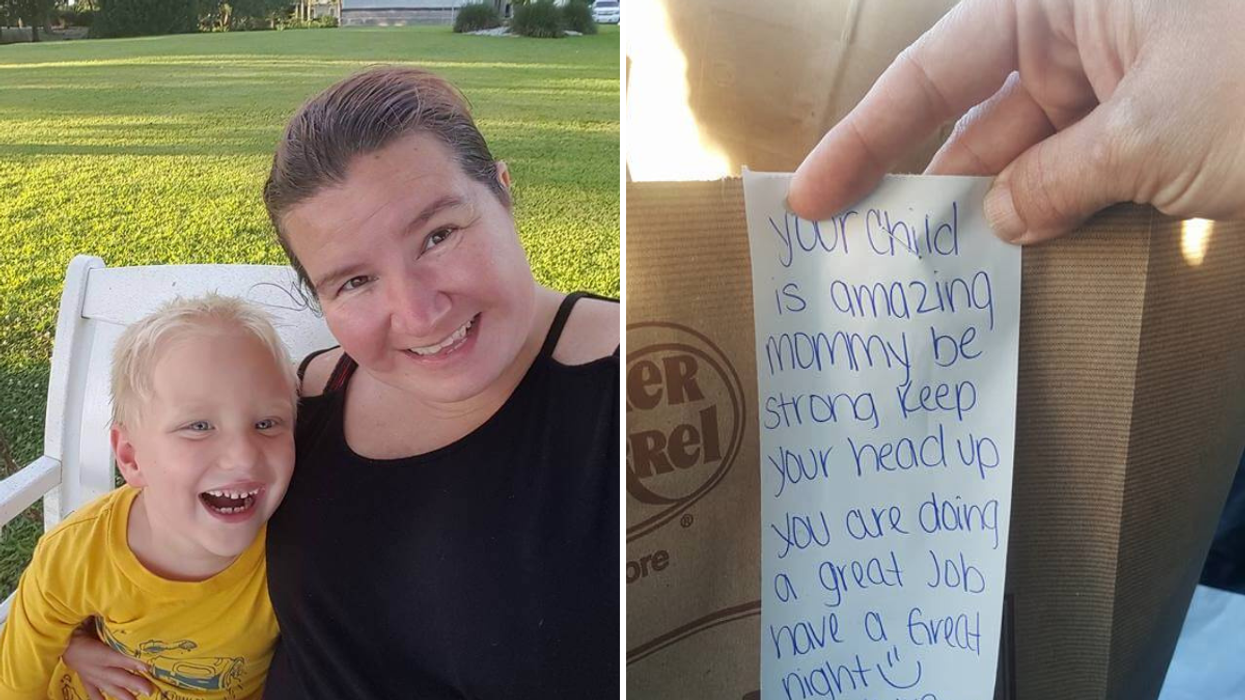 your child
is amazing
mommy be
strong keep
your head up
you are doing
a great Job
have a Great
night
eR
RRel
®
ore